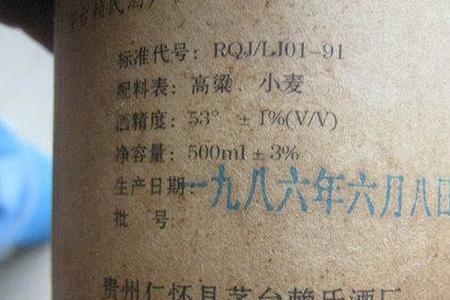 茅台赖氏酒厂
标准代号：RQJ/LJ01-91
配料表：高粱、小麦
酒精度：53° ±1%(V/V)
净容量：500ml±3%
生产日期：一九八六年六月八日
批 号
贵州仁怀县茅台赖氏酒厂